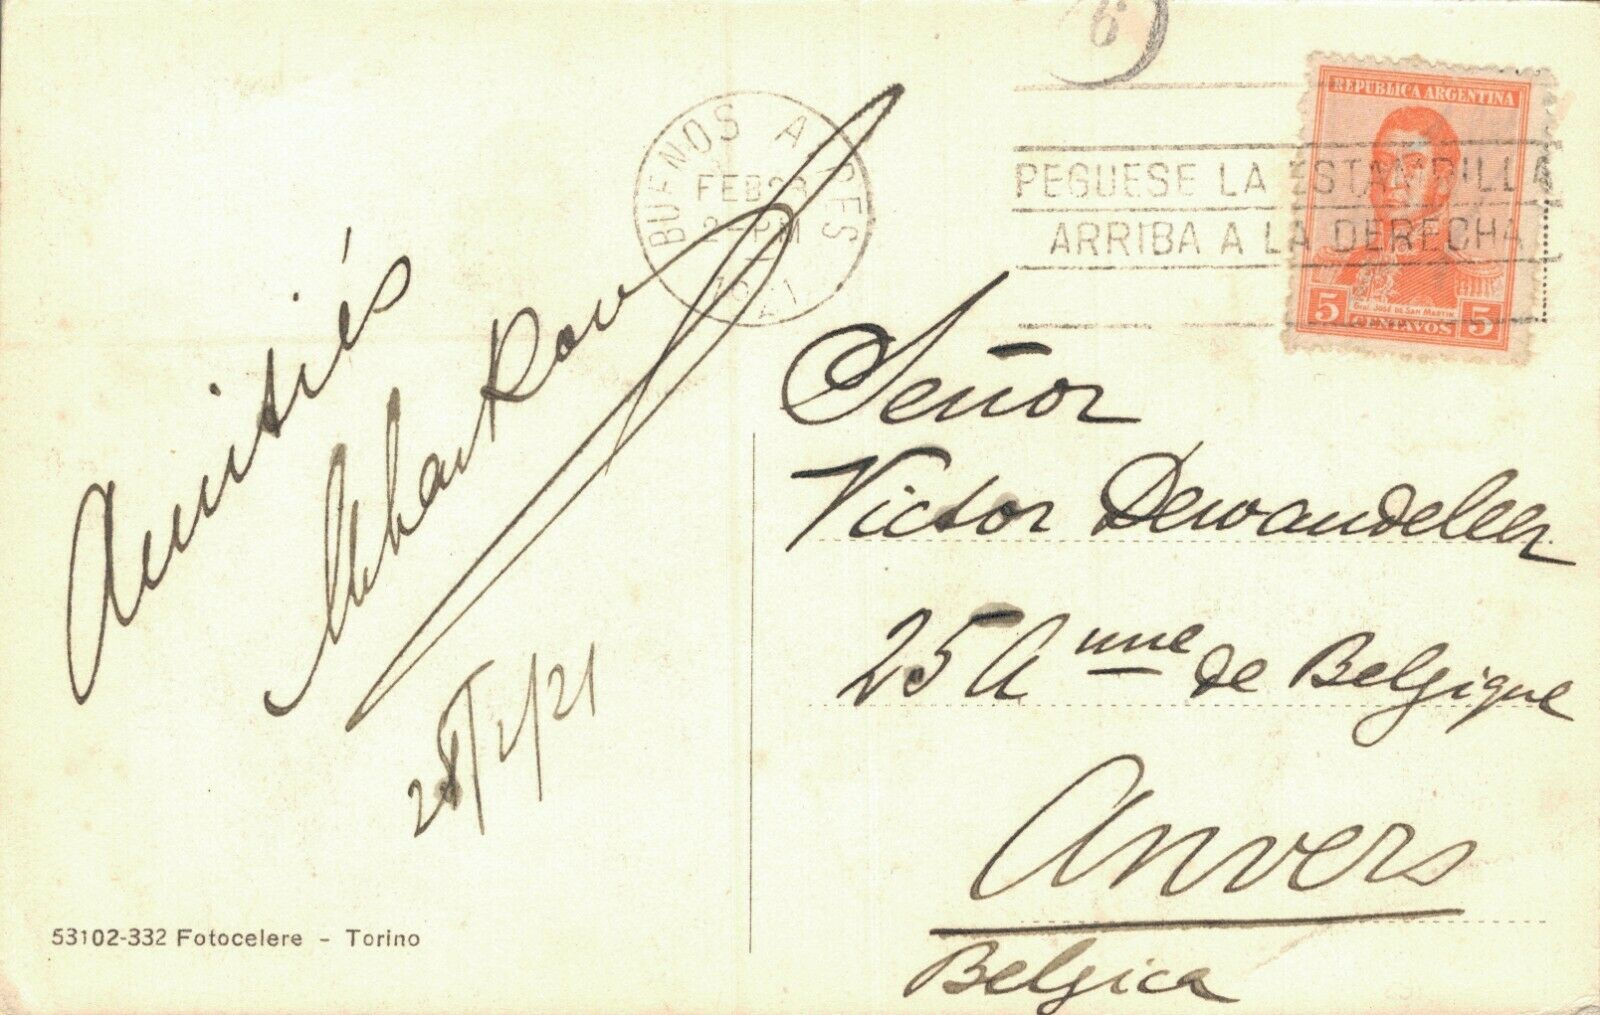 Amitiés
28/2/21
53102-332 Fotocelere - Torino
6
BUENOS AIRES
FEB 28
2-PM
1921
PEGUESE LA ESTAMPILLA
ARRIBA A LA DERECHA
REPUBLICA ARGENTINA
GRAL. JOSÉ DE SAN MARTIN
5 CENTAVOS 5
Señor
Victor Dewandeleer
25 Anne de Belgique
Anvers
Belgica